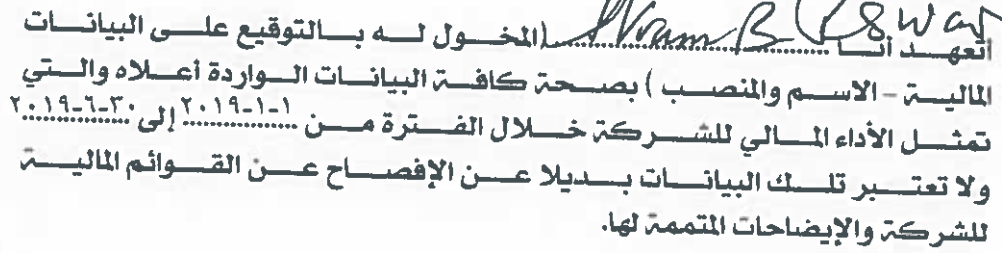 أتعهد أنا .................... (المخول له بالتوقيع على البيانات
المالية - الاسم والمنصب) بصحة كافة البيانات الواردة أعلاه والتي
تمثل الأداء المالي للشركة خلال الفترة من ١-١-٢٠١٩ إلى ٣٠-٦-٢٠١٩
ولا تعتبر تلك البيانات بديلا عن الإفصاح عن القوائم المالية
للشركة والإيضاحات المتممة لها.